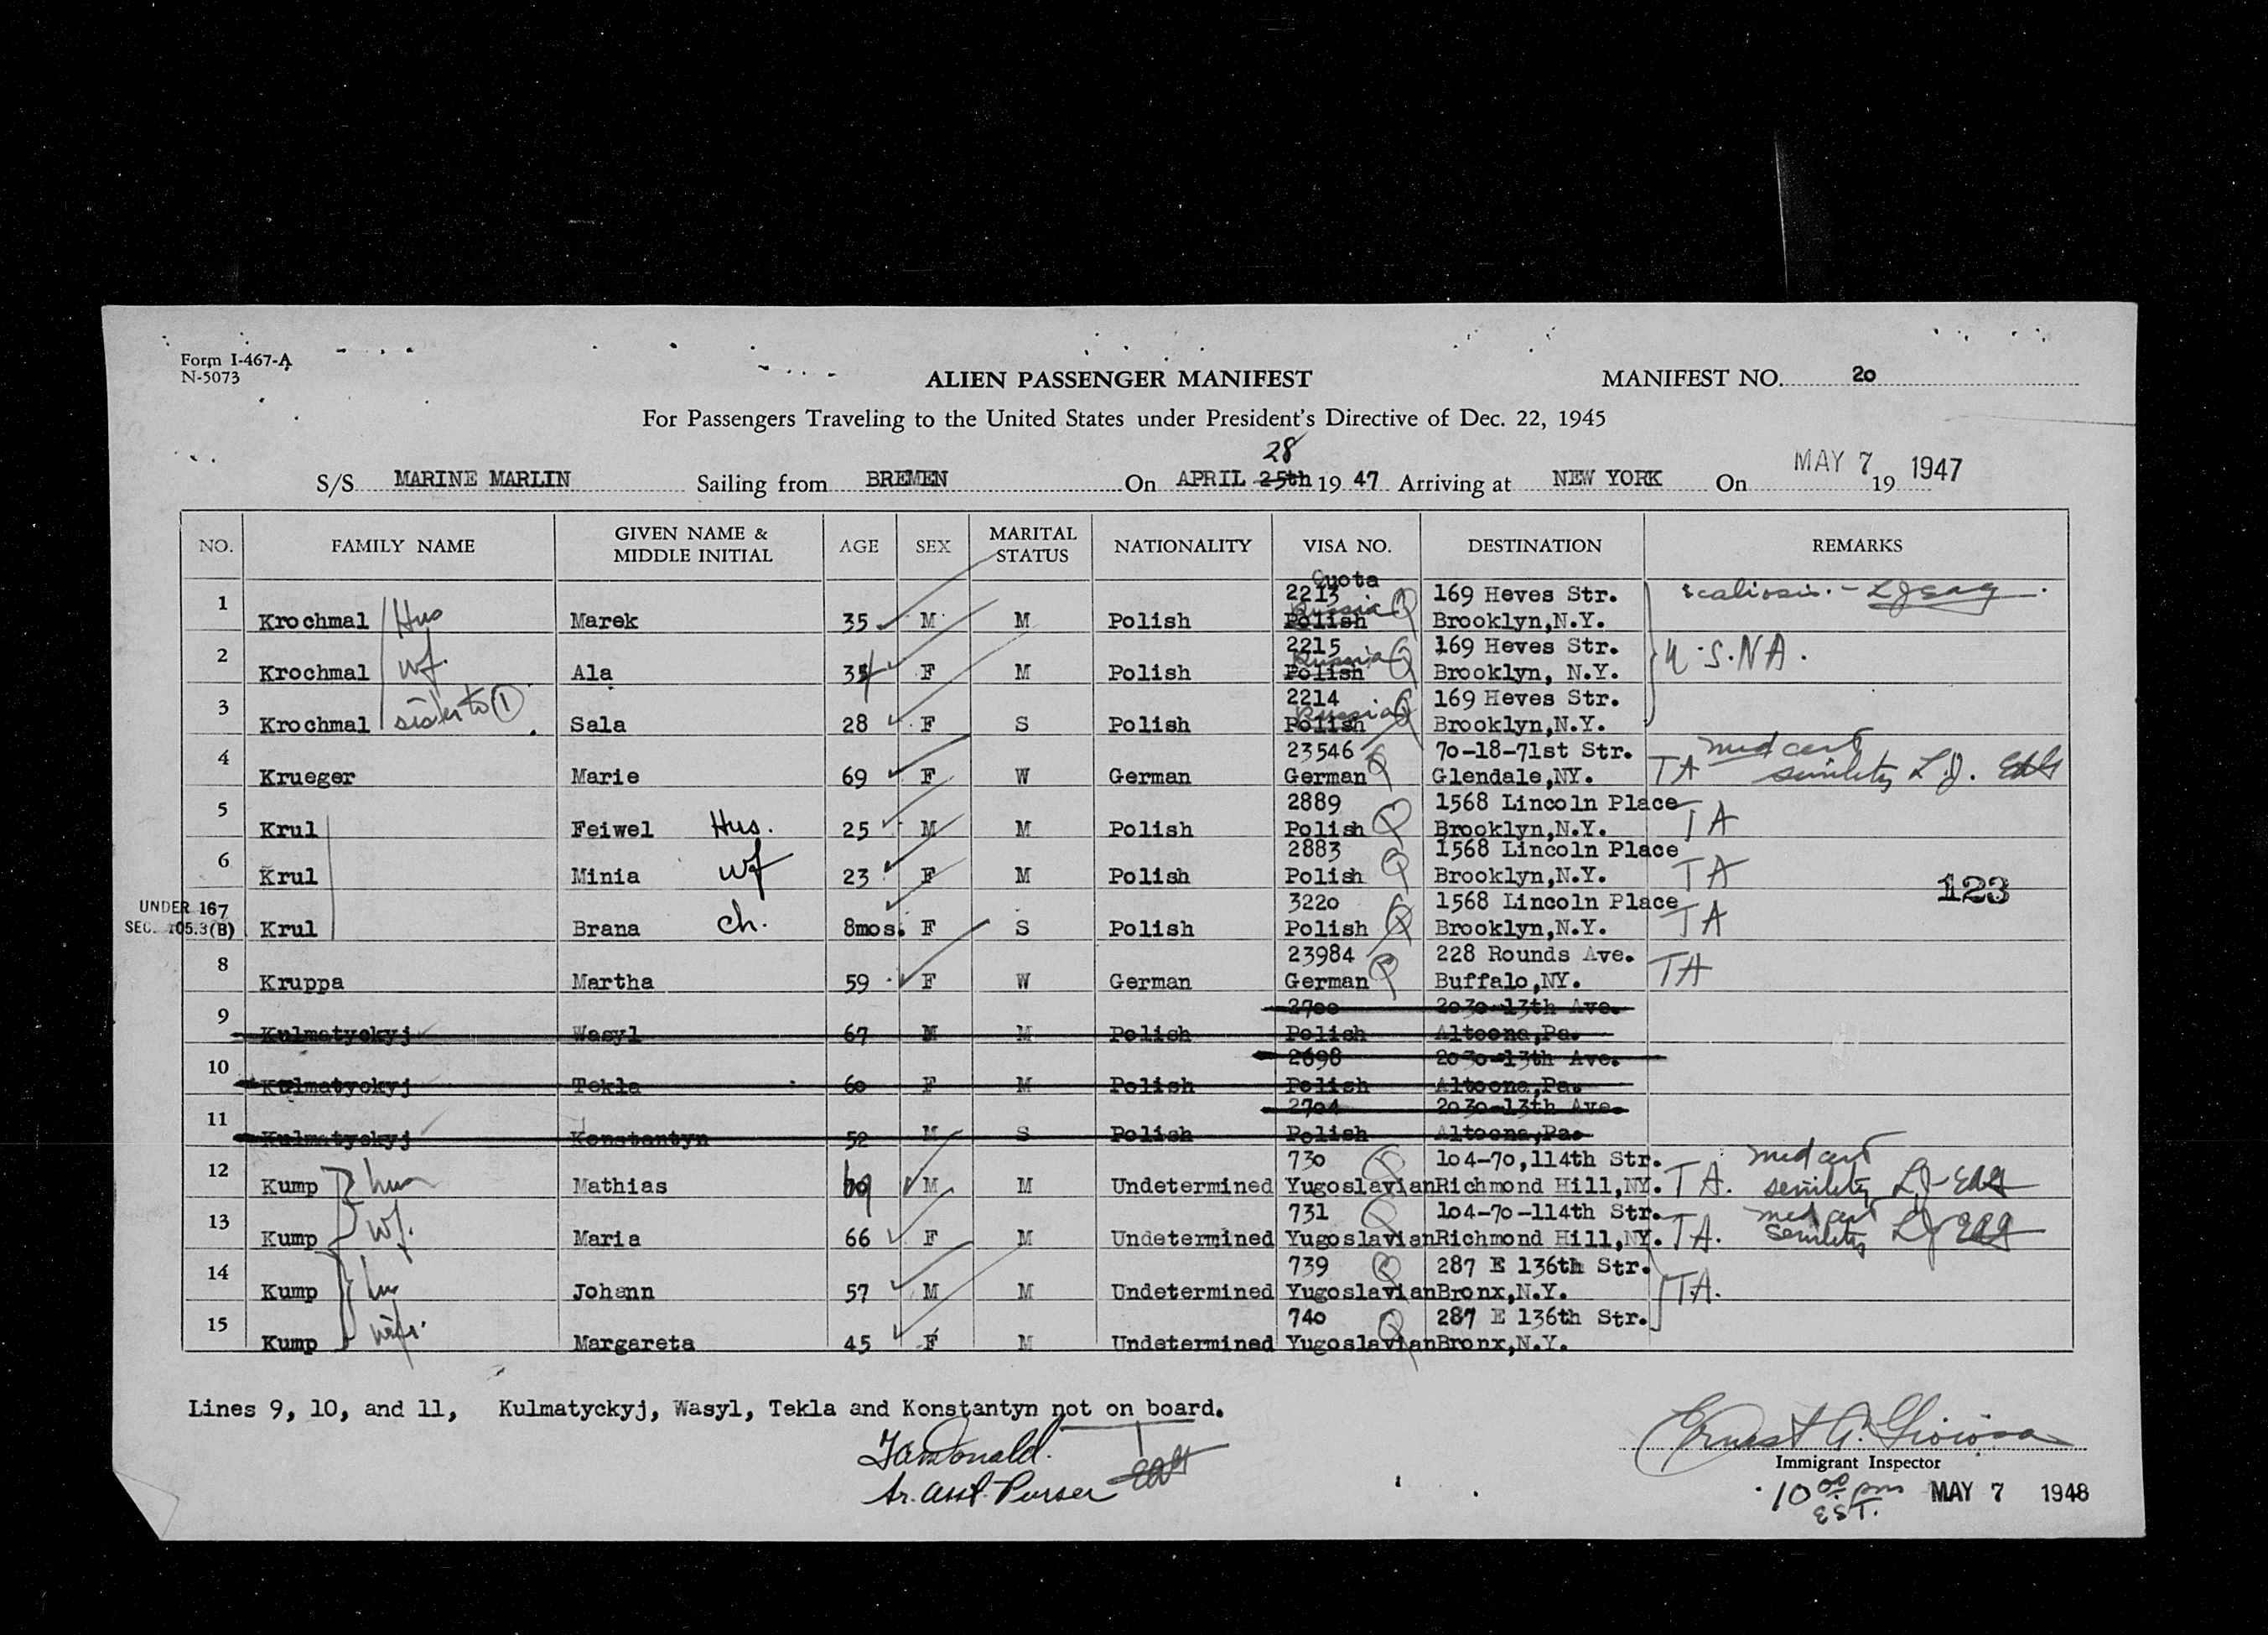 Form I-467-A
N-5073
ALIEN PASSENGER MANIFEST
MANIFEST NO. 20
For Passengers Traveling to the United States under President's Directive of Dec. 22, 1945
28
S/S MARINE MARLIN Sailing from BREMEN On APRIL 25th 19 47 Arriving at NEW YORK On MAY 7 19 1947
NO. FAMILY NAME GIVEN NAME & MIDDLE INITIAL AGE SEX MARITAL STATUS NATIONALITY VISA NO. DESTINATION REMARKS
Quota
1 2213 169 Heves Str.
Krochmal Hus Marek 35 M M Polish Russia Polish Q Brooklyn,N.Y.
2 2215 169 Heves Str. U.S.NA.
Krochmal wf. Ala 34 F M Polish Russia Polish Q Brooklyn, N.Y.
3 2214 169 Heves Str.
Krochmal sister to 1 Sala 28 F S Polish Russia Polish Q Brooklyn,N.Y.
4 23546 70-18-71st Str. med cert
Krueger Marie 69 F W German German Q Glendale,NY. TA senility L.J. EAG
5 2889 1568 Lincoln Place
Krul Feiwel Hus. 25 M M Polish Polish Q Brooklyn,N.Y. TA
6 2883 1568 Lincoln Place
Krul Minia wf 23 F M Polish Polish Q Brooklyn,N.Y. TA
123
UNDER 16 7 3220 1568 Lincoln Place
SEC. 105.3(B) Krul Brana ch. 8mos. F S Polish Polish Q Brooklyn,N.Y. TA
8 23984 228 Rounds Ave.
Kruppa Martha 59 F W German German Q Buffalo,NY. TA
9 2700 2030-13th Ave.
Kulmatyckyj Wasyl 67 M M Polish Polish Altoona,Pa.
10 2698 2030-13th Ave.
Kulmatyckyj Tekla 60 F M Polish Polish Altoona,Pa.
11 2704 2030-13th Ave.
Kulmatyckyj Konstantyn 52 M S Polish Polish Altoona,Pa.
12 730 Q 104-70,114th Str. med cert
Kump hus Mathias 69 M M Undetermined Yugoslavian Richmond Hill,NY. TA. senility LJ-EAG
13 731 Q 104-70-114th Str. med cert
Kump wf. Maria 66 F M Undetermined Yugoslavian Richmond Hill,NY. TA. Senility LJ EAG
14 739 Q 287 E 136th Str.
Kump hu Johann 57 M M Undetermined Yugoslavian Bronx,N.Y. TA.
15 740 Q 287 E 136th Str.
Kump wife. Margareta 45 F M Undetermined Yugoslavian Bronx,N.Y.
Lines 9, 10, and 11, Kulmatyckyj, Wasyl, Tekla and Konstantyn not on board.
Sr. Asst. Purser EAG
Ernest A. Gioiosa
Immigrant Inspector
10 00 pm MAY 7 1948
E.S.T.